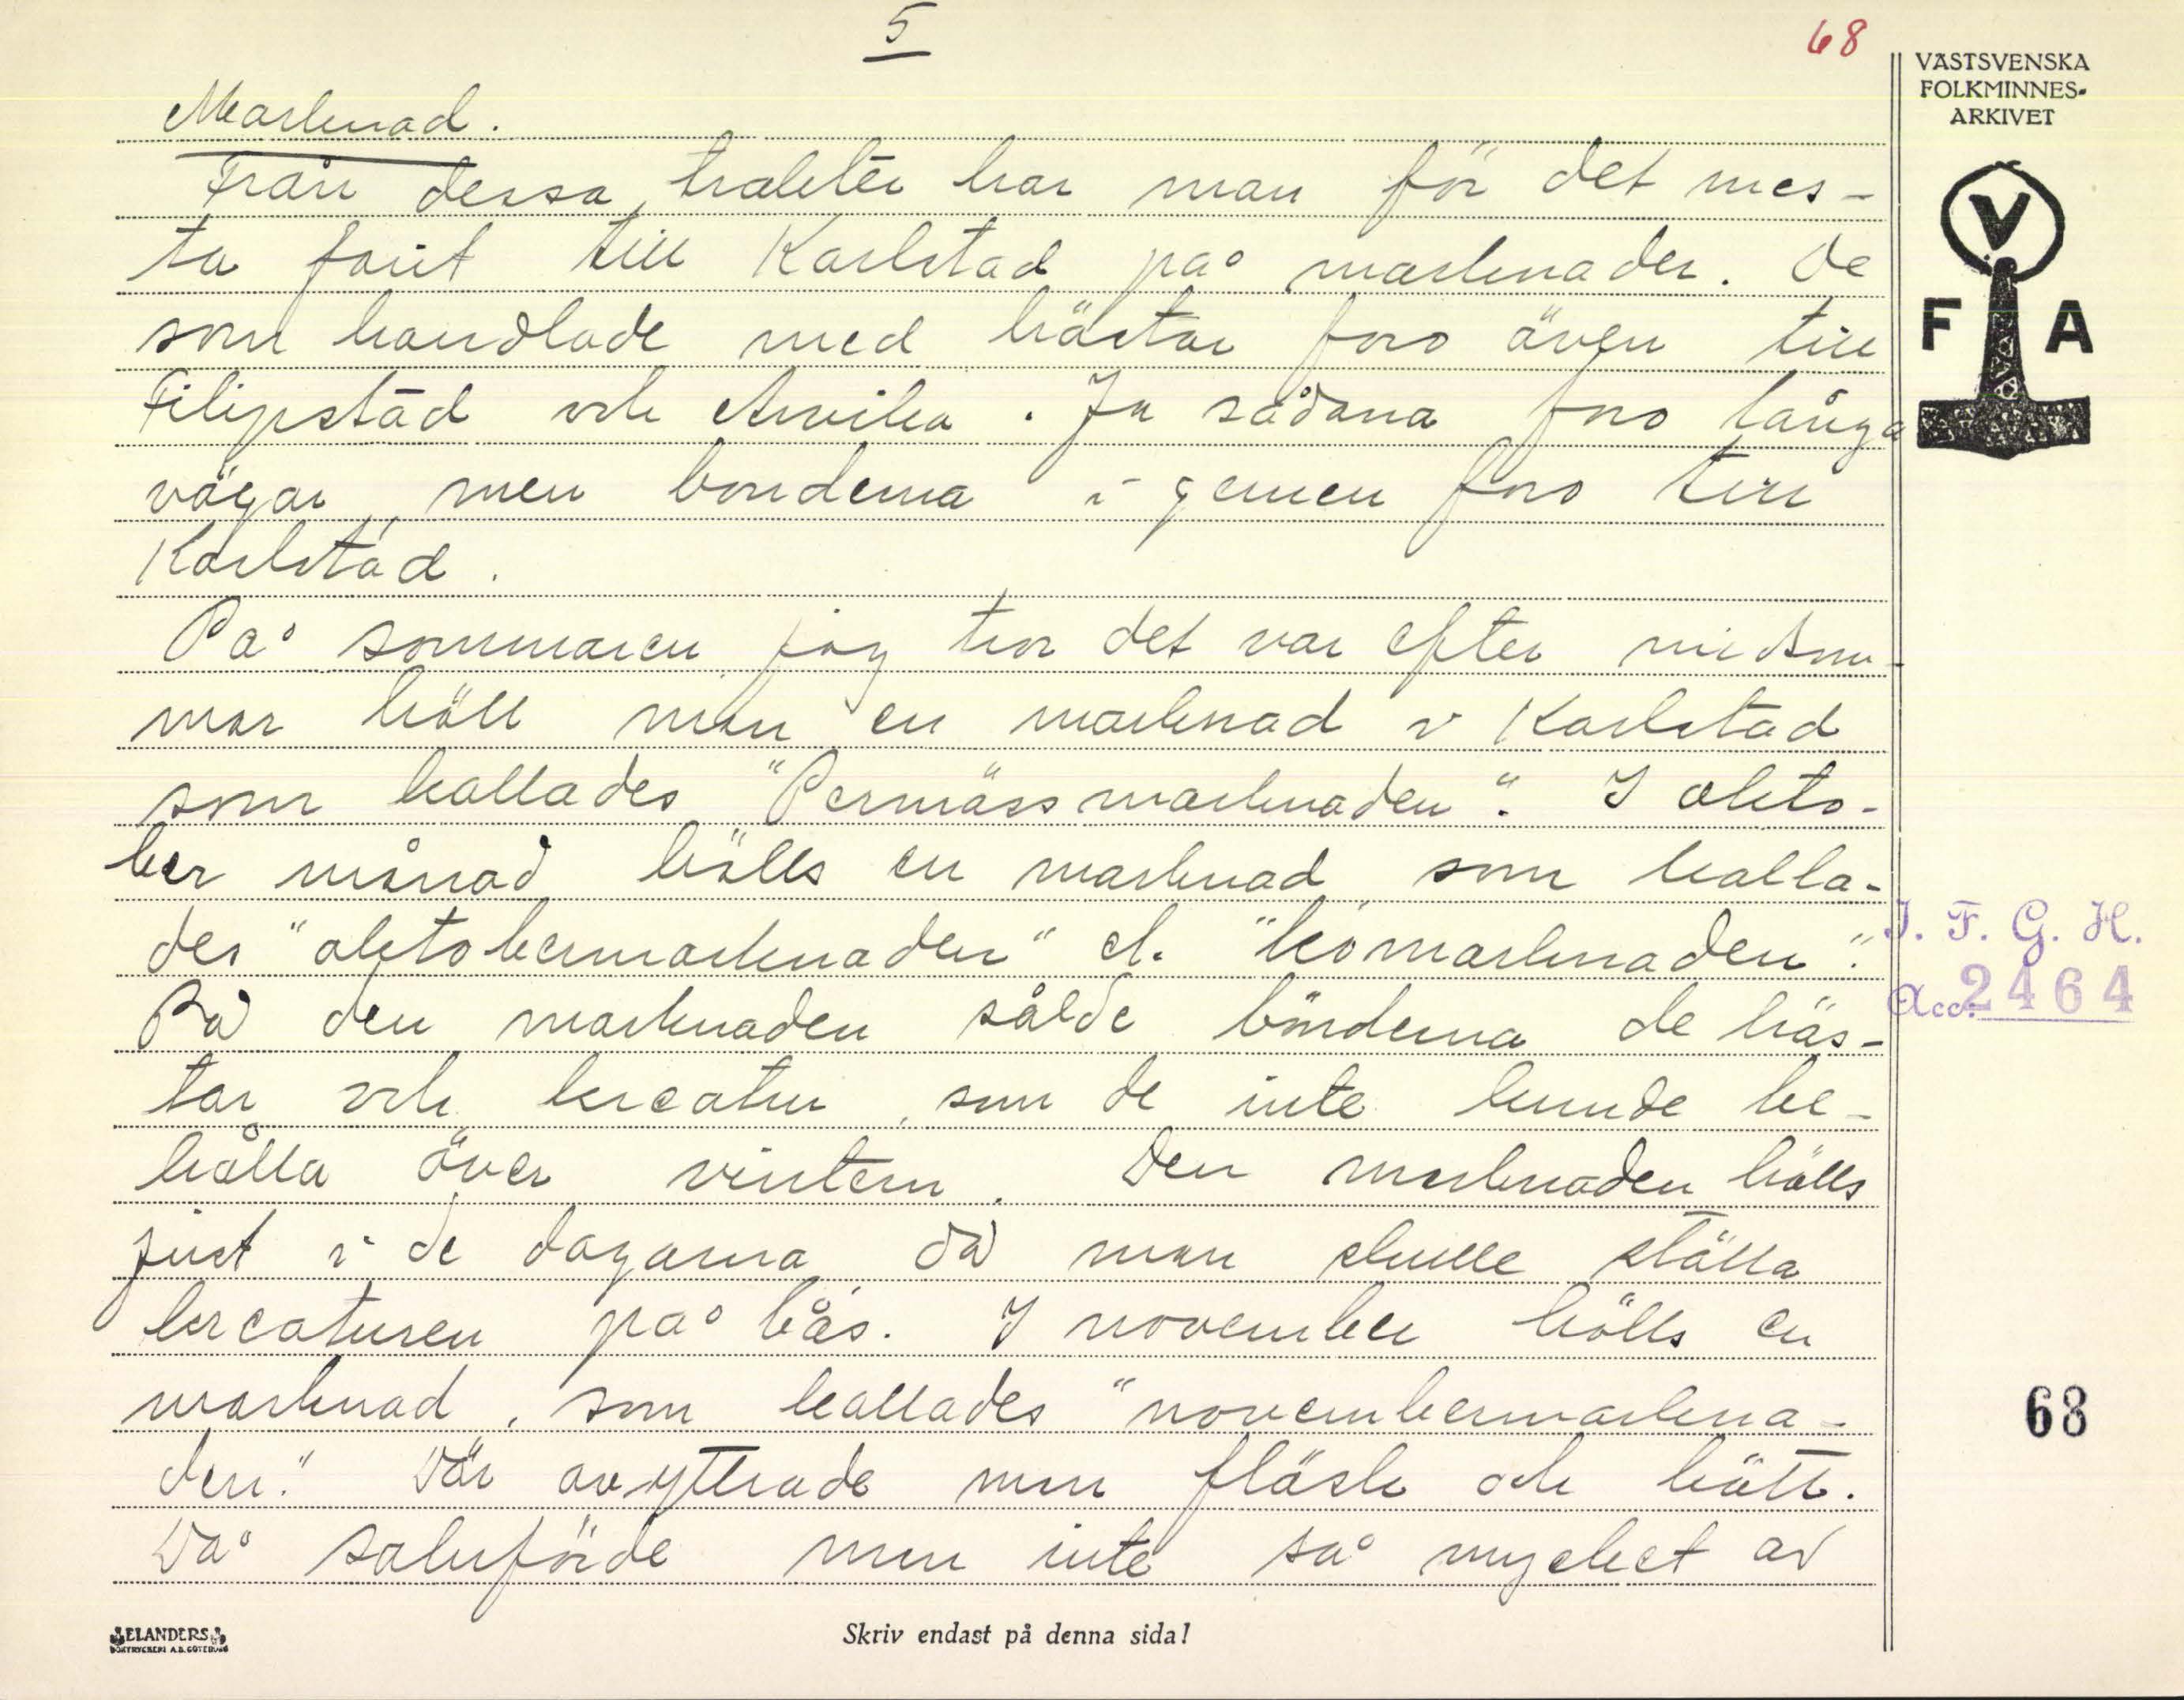 5
68
VÄSTSVENSKA
FOLKMINNES-
ARKIVET
Marknad.
Från dessa trakter har man för det mes-
ta farit till Karlstad på marknader. De
som handlade med hästar foro även till
Filipstad och Arvika. Ja sådana foro långa
vägar, men bönderna i gemen foro till
Karlstad.
På sommaren jag tror det var efter midsom-
mar höll man en marknad i Karlstad
som kallades "Permässmarknaden". I okto-
ber månad hölls en marknad som kalla-
des "oktobermarknaden" el. "kömarknaden".
På den marknaden sålde bönderna de häs-
tar och kreatur, som de inte kunde be-
hålla över vintern. Den marknaden hölls
just i de dagarna då man skulle ställa
kreaturen på bås. I november hölls en
marknad, som kallades "novembermarkna-
den." Där avyttrade man fläsk och kött.
Då saluförde man inte så mycket av
V
F A
I. F. G. H.
Acc. 2464
68
ELANDERS
BOKTRYCKERI A.B. GÖTEBORG
Skriv endast på denna sida!